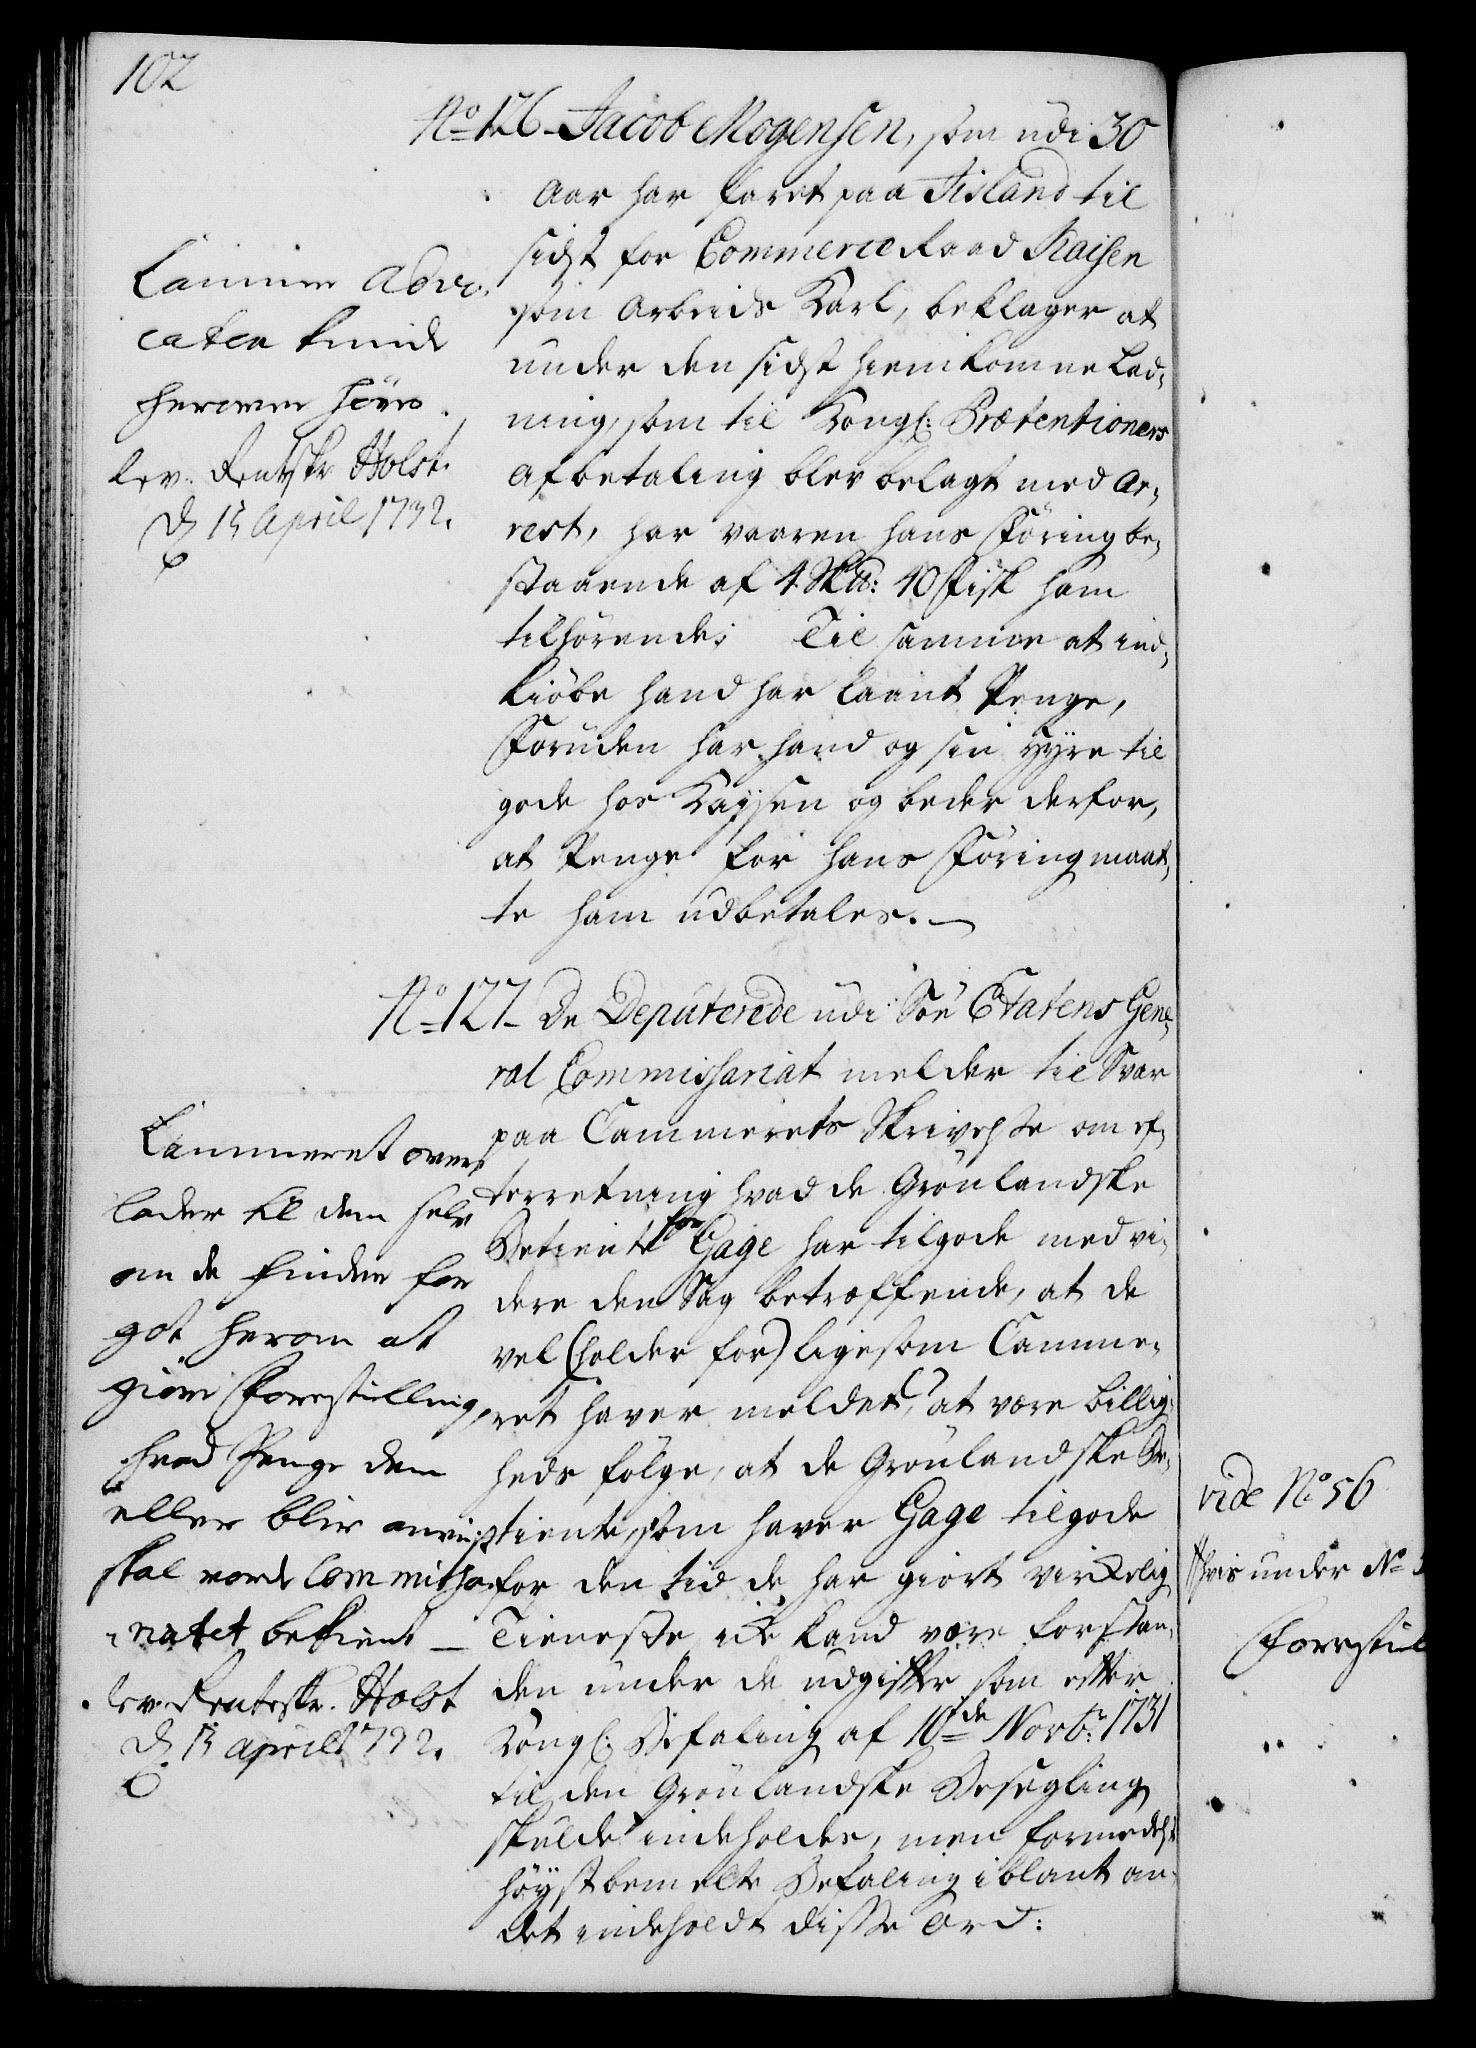 102
No 126. Jacob Mogensen, som udi 30
Aar har faret paa Iisland til
sidst for Commerce Raad Kaisen
som Arbeids Karl, beklager at
under den sidst hiemkomne Lad¬
ning, som til Kongl: Prætentioners
Afbetaling blev belagt med Ar¬
rest, har vaaren hans Föring be¬
staaende af 4 Sk℔: 40 Fisk ham
tilhörende; Til samme at ind¬
kiöbe hand har laant Penge,
Foruden har hand og sin Hyre til
gode hos Kaysen og beder derfor,
at Penge for hans Föring maat¬
te ham udbetales.
Cammer Advo¬
caten kunde
herover höres.
lev. Rentskr Holst.
d 15 April 1732.
No 127. De Deputerede udi Söe Etatens Gene¬
ral Commissariat melder til Svar
paa Cammerets Skrivelse om ef¬
terretning hvad de Grönlandske
Betiente for Gage har tilgode med vi¬
dere den Sag betræffende, at de
vel (holder for) ligesom Camme¬
ret haver meldet, at være billig¬
heds fölge, at de Grönlandske Be¬
tiente, som haver Gage tilgode
for den tid de har giort virkelig
Tieneste icke kand være forstan¬
den under de udgifter som efter
Kongl: Befaling af 10de Novbr: 1731
til den Grönlandske Besegling
skulde indeholdes, men formedelst
höystbemelte Befaling iblant an¬
det indeholdt disse Ord:
Cammeret over¬
lader til dem selv
om de finder for
got herom at
giöre Forestilling,
hvad Penge dem
ellers blir anvist
skal vorde Commissa¬
riatet betient
lev. Renteskr. Holst
d 15 April 1732.
vide No 56
hvis under No
Forestil